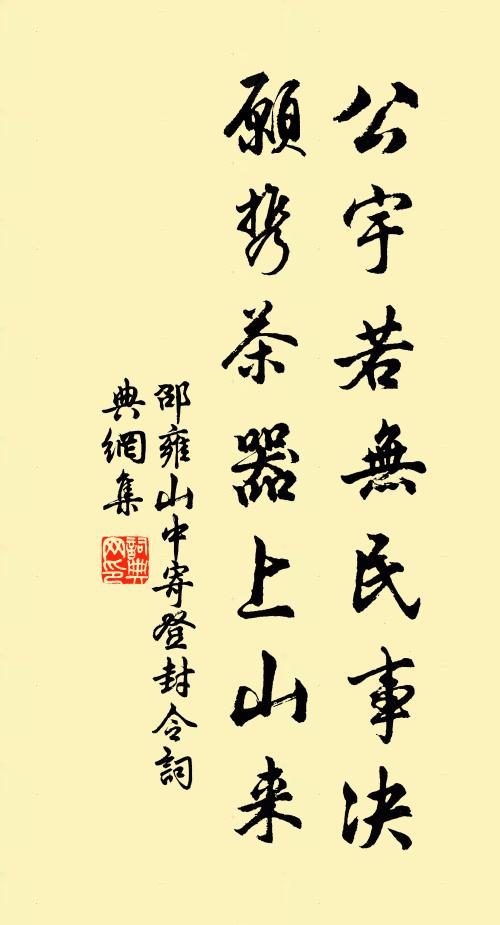 公宇若無民事決
願携茶器上山来
邵雍山中寄登封令詞
典網集
詞典网印